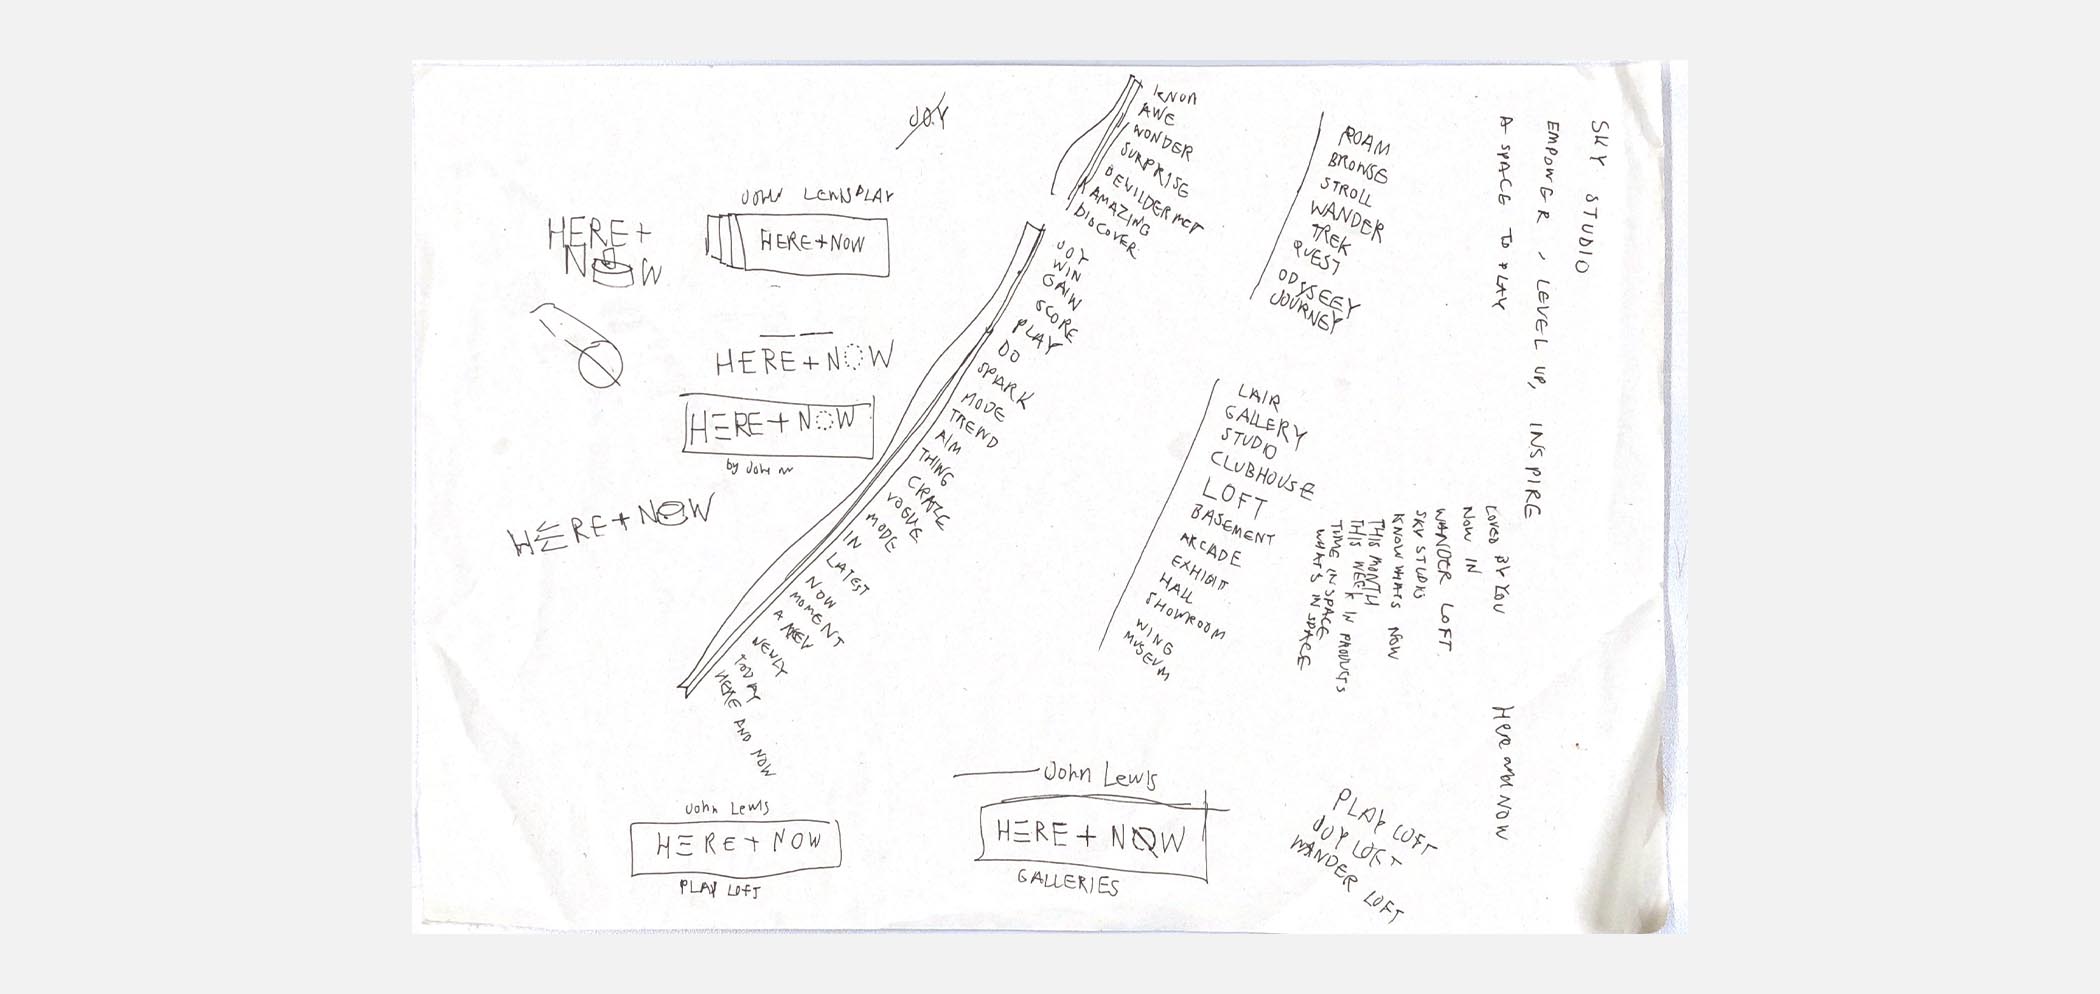 JOY
JOHN LEWIS PLAY
HERE + NOW
HERE +
NOW
HERE + NOW
HERE + NOW
by John
HERE + NOW
AWE
WONDER
SURPRISE
BEVILDERMENT
AMAZING
DISCOVER
JOY
WIN
GAIN
SCORE
PLAY
DO
SPARK
MODE
TREND
AIM
THING
CRAZE
VOGUE
MODE
IN
LATEST
NOW
MOMENT
A NEW
NEWLY
TODAY
HERE AND NOW
ROAM
BROWSE
STROLL
WANDER
TREK
QUEST
ODYSEEY
JOURNEY
LAIR
GALLERY
STUDIO
CLUBHOUSE
LOFT
BASEMENT
ARCADE
EXHIBIT
HALL
SHOWROOM
WING
MUSEUM
SKY STUDIO
EMPOWER, LEVEL UP, INSPIRE
A SPACE TO PLAY
LOVED BY YOU
NOW IN
WANDER LOFT
SKY STUDIO
KNOW WHATS NOW
THIS MONTH
THIS WEEK IN PRODUCTS
TIME IN SPACE
WHATS IN SPACE
Here and NOW
John Lewis
HERE + NOW
PLAY LOFT
John Lewis
HERE + NOW
GALLERIES
PLAY LOFT
JOY LOFT
WANDER LOFT